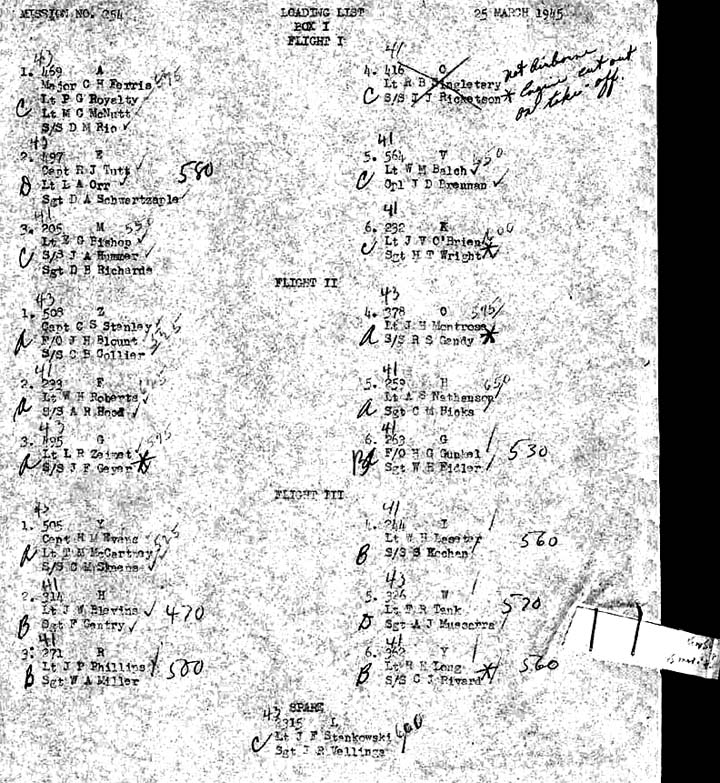 MISSION NO. 254 LOADING LIST 25 MARCH 1945
BOX I
FLIGHT I
43
1. 469 A
Major C H Ferris
C Lt P G Royalty ✓
Lt M C McNutt ✓
S/S D M Rio ✓
43
2. 497 E
Capt R J Tutt ✓ 580
D Lt L A Orr ✓
Sgt D A Schwertzaple
41
3. 205 M 550
Lt E G Bishop ✓
C S/S J A Hummer ✓
Sgt D B Richards
41
4. 416 O
Lt R B Singletary
C S/S J J Ricketson * not airborne
Engine cut out
on take-off.
41
5. 564 V
Lt W M Balch ✓
C Cpl J D Brennan ✓
41
6. 232 K
C Lt J V O'Brien
Sgt H T Wright *
FLIGHT II
43
1. 508 Z
Capt C S Stanley ✓
A F/O J H Blount
S/S C B Collier
41
2. 293 F
Lt W H Roberts ✓
A S/S A R Hood ✓
43
3. 495 G
Lt L R Zeimet
A S/S J F Geyer *
43
4. 378 O
Lt J H Montrose
A S/S R S Gandy *
41
5. 259 H 650
Lt A S Nathanson
A Sgt C M Hicks
41
6. 263 G
F/O H G Gunkel 530
Sgt W H Fidler
FLIGHT III
43
1. 505 Y
Capt H M Evans
A Lt T M McCartney
S/S C M
41
2. 314 H
Lt J W Blevins ✓ 470
B Sgt F Gentry ✓
41
3. 271 R
Lt J P Phillips 500
B Sgt W A Miller
41
4. 244
Lt W H 560
B S/S S Kochan
43
5. 326 W
Lt F R Tank 570
D Sgt A J Muscarra
41
6. 362 Y
Lt R H Long 560
B S/S C J Rivard *
SPARE
43
2315 L
C Lt J F Stankowski 600
Sgt J R Vellinga